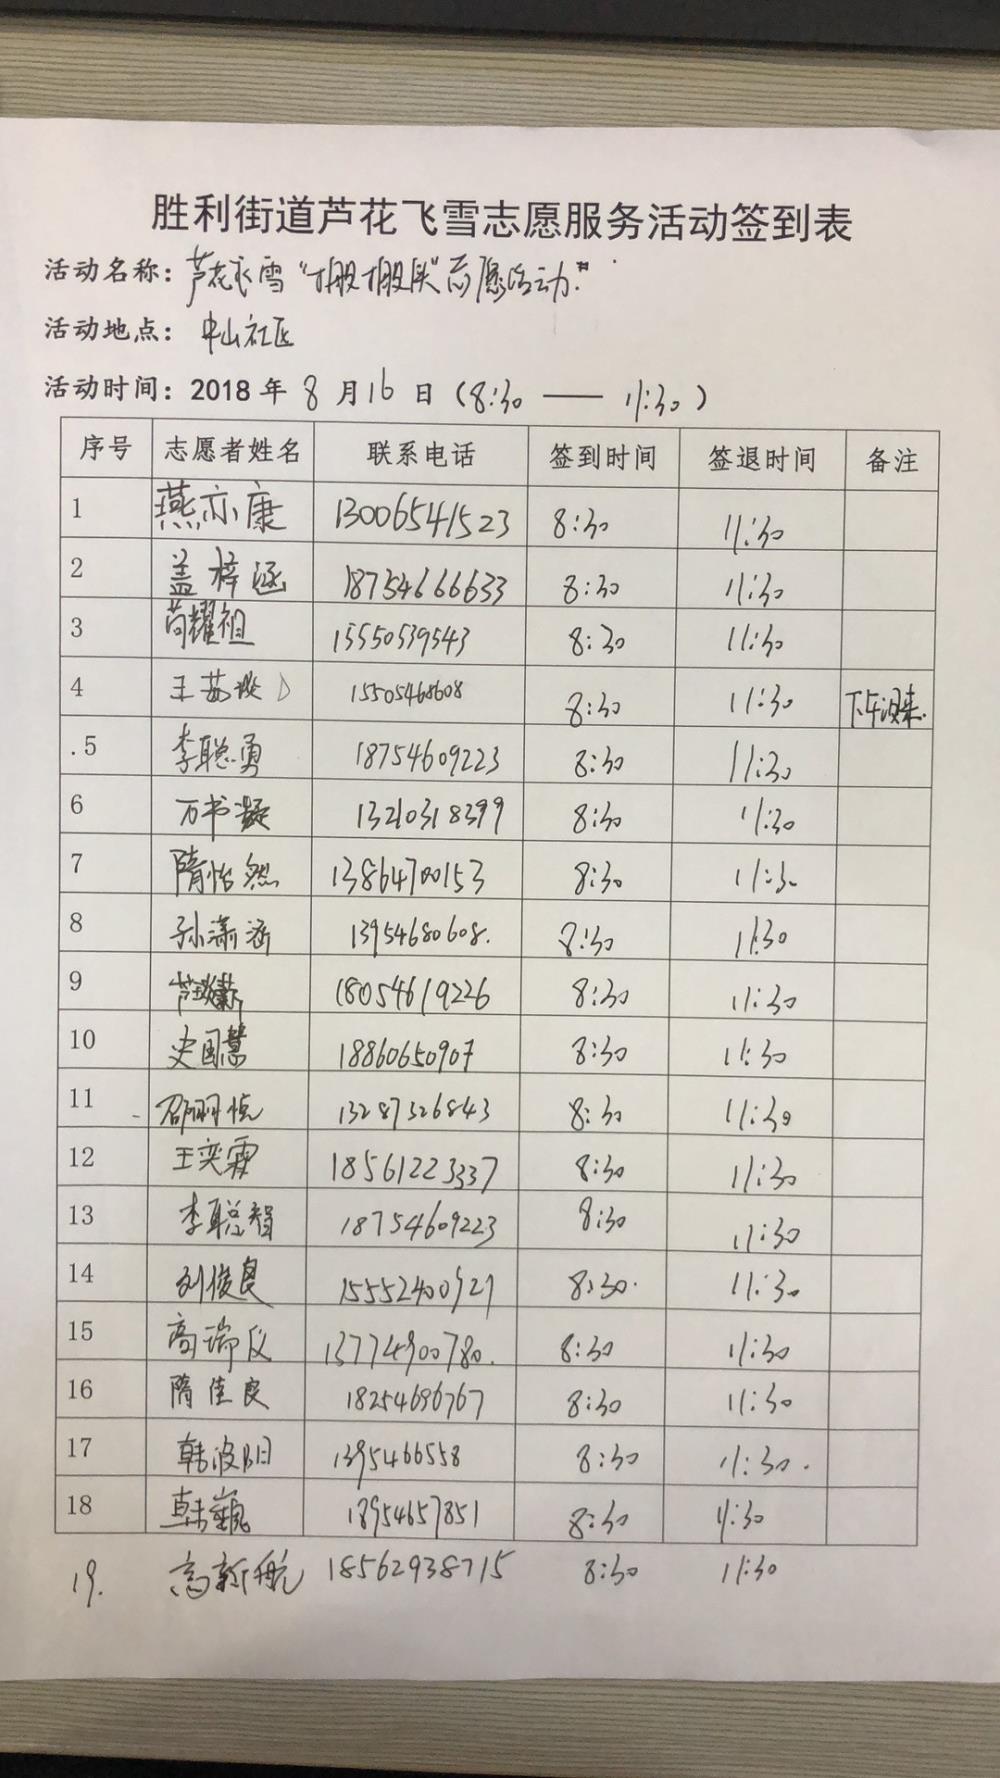 胜利街道芦花飞雪志愿服务活动签到表
活动名称：芦花飞雪"志愿活动"
活动地点：中山社区
活动时间：2018 年 8 月 16 日（8:30 —— 11:30）
序号 志愿者姓名 联系电话 签到时间 签退时间 备注
1 燕亦康 13006541523 8:30 11:30
2 盖梓涵 18754666633 8:30 11:30
3 苘耀祖 15550539543 8:30 11:30
4 王 15505468608 8:30 11:30 下午没来.
.5 李聪勇 18754609223 8:30 11:30
6 万书凝 13210318399 8:30 11:30
7 隋怡然 13864700153 8:30 11:30
8 孙潇涵 13954680608. 8:30 11:30
9 18054619226 8:30 11:30
10 史国慧 18860650907 8:30 11:30
11 邵羽恒 13287326843 8:30 11:30
12 王奕霏 18561223337 8:30 11:30
13 李聪智 18754609223 8:30 11:30
14 刘俊良 15552400927 8:30. 11:30
15 高瑞仪 13774900780. 8:30 11:30
16 隋佳良 18254686767 8:30 11:30
17 韩波阳 1395466558 8:30 11:30.
18 韩巍 18954657851 8:30 11:30
19. 高新航 18562938715 8:30 11:30